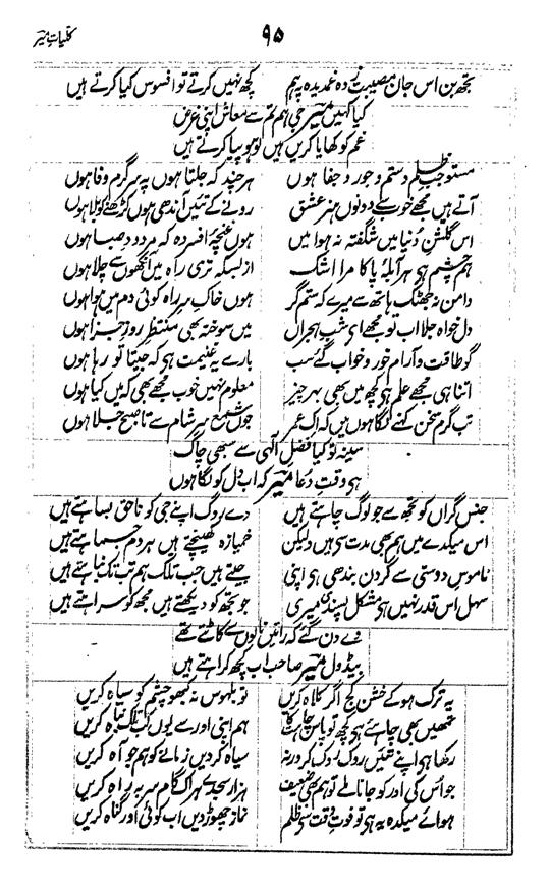 کلیاتِ میر
۹۵
تجھ بن اس جانِ مصیبت زدہ غمدیدہ پہ ہم کچھ نہیں کرتے تو افسوس کیا کرتے ہیں
کیا کہیں میر جی ہم تم سے معاش اپنی غرض
غم کو کھایا کریں ہیں لوہو پیا کرتے ہیں
مستوجبِ ظلم و ستم و جور و جفا ہوں ہر چند کہ جلتا ہوں پہ سرگرمِ وفا ہوں
آتے ہیں مجھے خوب سے دونوں ہنرِ عشق رونے کے تئیں آندھی ہوں کڑھنے کو بلا ہوں
اس گلشنِ دنیا میں شگفتہ نہ ہوا میں ہوں غنچۂ افسردہ کہ مردودِ صبا ہوں
ہم چشم ہی ہر آبلۂ پا کا مرا اشک از بسکہ تری راہ میں آنکھوں سے چلا ہوں
دامن نہ جھٹک ہاتھ سے میرے کہ ستم گر ہوں خاکِ سرِ راہ کوئی دم میں ہوا ہوں
دل خواہ جلا اب تو مجھے ای شبِ ہجراں میں سوختہ بھی منتظرِ روزِ جزا ہوں
گو طاقت و آرام و خور و خواب گئے سب بارے یہ غنیمت ہی کہ جیتا تو رہا ہوں
اتنا ہی مجھے علم ہی کچھ میں بھی بہر چیز معلوم نہیں خوب مجھے بھی کہ میں کیا ہوں
تب گرمِ سخن کہنے لگا ہوں میں کہ اک عمر جوں شمع سرِ شام سے تا صبح جلا ہوں
سینہ تو کیا فضلِ الٰہی سے سبھی چاک
ہی وقتِ دعا میر کہ اب دل کو لگا ہوں
جنسِ گراں کو تجھ سے جو لوگ چاہتے ہیں دے روگ اپنے جی کو ناحق بساہتے ہیں
اس میکدے میں ہم بھی مدت سی ہیں ولیکن خمیازہ کھینچتے ہیں ہر دم جماہتے ہیں
ناموسِ دوستی سے گردن بندھی ہی اپنی جیتے ہیں جب تلک ہم تب تک نباہتے ہیں
سہل اس قدر نہیں ہی مشکل پسندی میری جو تجھ کو دیکھتے ہیں مجھ کو سراہتے ہیں
وے دن گئے کہ راتیں نالوں سے کاٹتے تھے
بیڈول میر صاحب اب کچھ کراہتے ہیں
یہ ترک ہو کے خشن کج اگر کلاہ کریں تو بلہوس نہ کبھو چشم کو سیاہ کریں
تمھیں بھی چاہئے ہی کچھ تو پاس چاہت کا ہم اپنی اور سے یوں کب تلک نباہ کریں
رکھا ہی اپنے تئیں روک روک کر ورنہ سیاہ کر دیں زمانے کو ہم جو آہ کریں
جو اس کی اور کو جانا ملے تو ہم بھی ضعیف ہزار سجدے ہر اک گام سربراہ کریں
ہوائے میکدہ یہ ہی تو فوتِ وقت ہی ظلم نماز چھوڑ دیں اب کوئی اور گناہ کریں